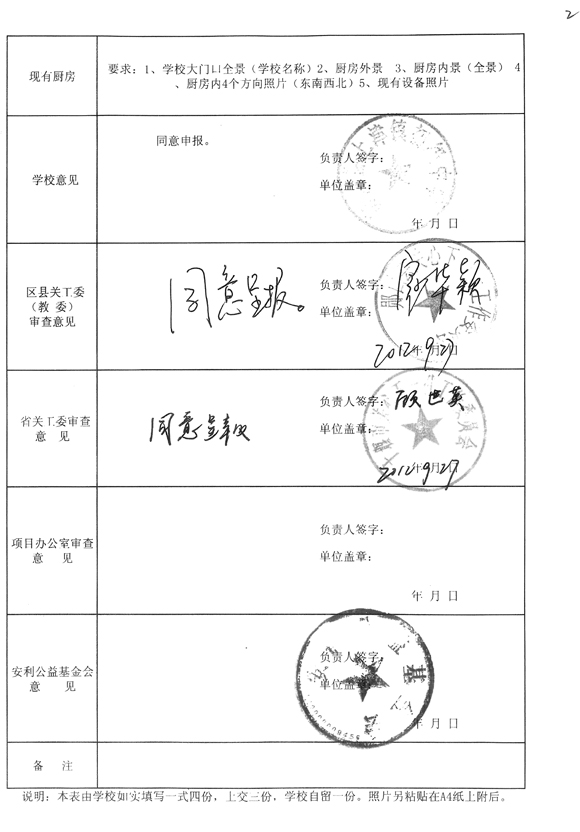 2
现有厨房
要求：1、学校大门口全景（学校名称）2、厨房外景 3、厨房内景（全景） 4
、厨房内4个方向照片（东南西北）5、现有设备照片
学校意见
同意申报。
负责人签字：
单位盖章：
年 月 日
区县关工委
（教 委）
审查意见
同意呈报。
负责人签字：
单位盖章：
2012年9月27日
省关工委审查
意 见
同意呈报
负责人签字：
单位盖章：
2012年9月27日
项目办公室审查
意 见
负责人签字：
单位盖章：
年 月 日
安利公益基金会
意 见
负责人签字：
单位盖章：
年 月 日
备 注
说明：本表由学校如实填写一式四份，上交三份，学校自留一份。照片另粘贴在A4纸上附后。